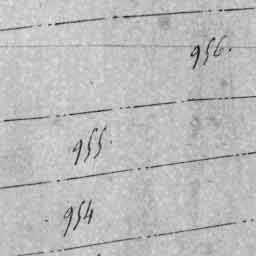 956.
955.
954